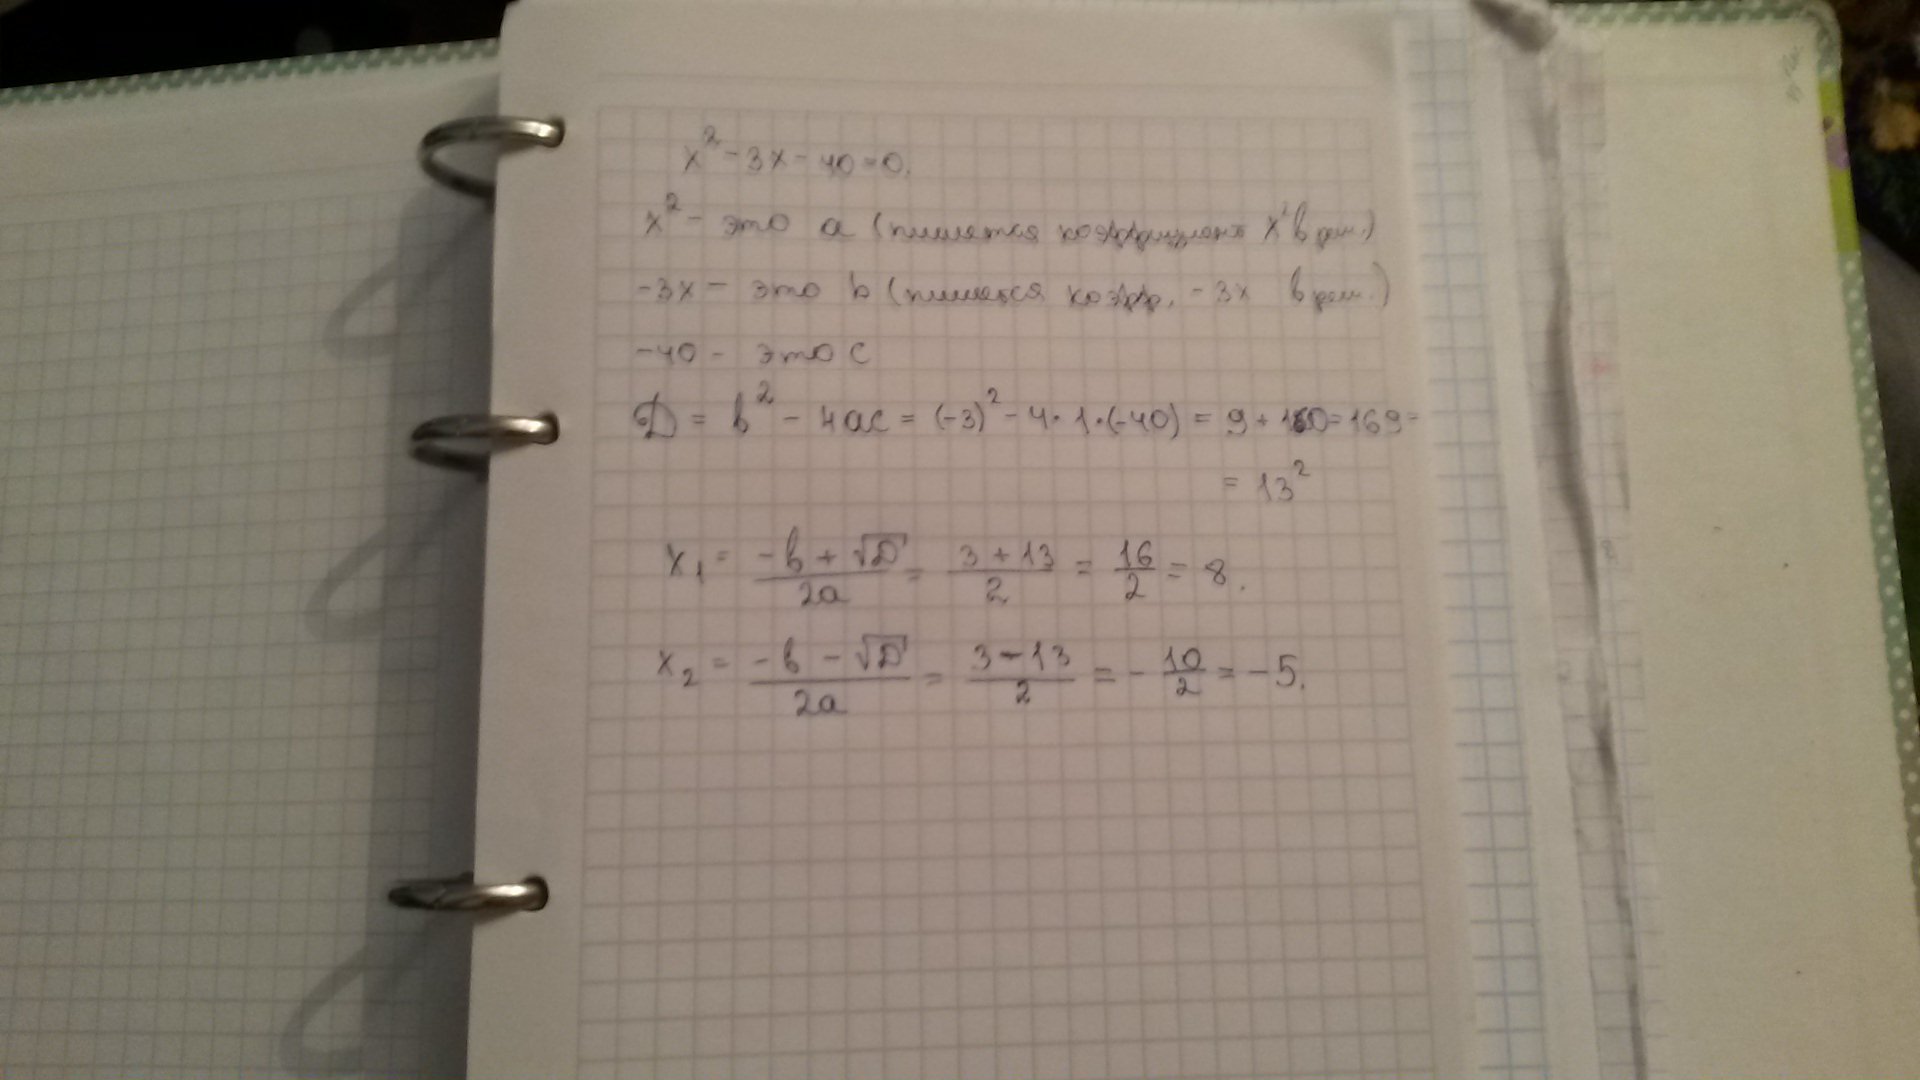 x² - 3x - 40 = 0.
x² - это a (пишется коэффициент x² в реш.)
-3x - это b (пишется коэфф. -3x в реш.)
-40 - это c
D = b² - 4ac = (-3)² - 4·1·(-40) = 9 + 160 = 169 =
= 13²
x₁ = (-b + √D)/2a = (3 + 13)/2 = 16/2 = 8.
x₂ = (-b - √D)/2a = (3 - 13)/2 = -10/2 = -5.